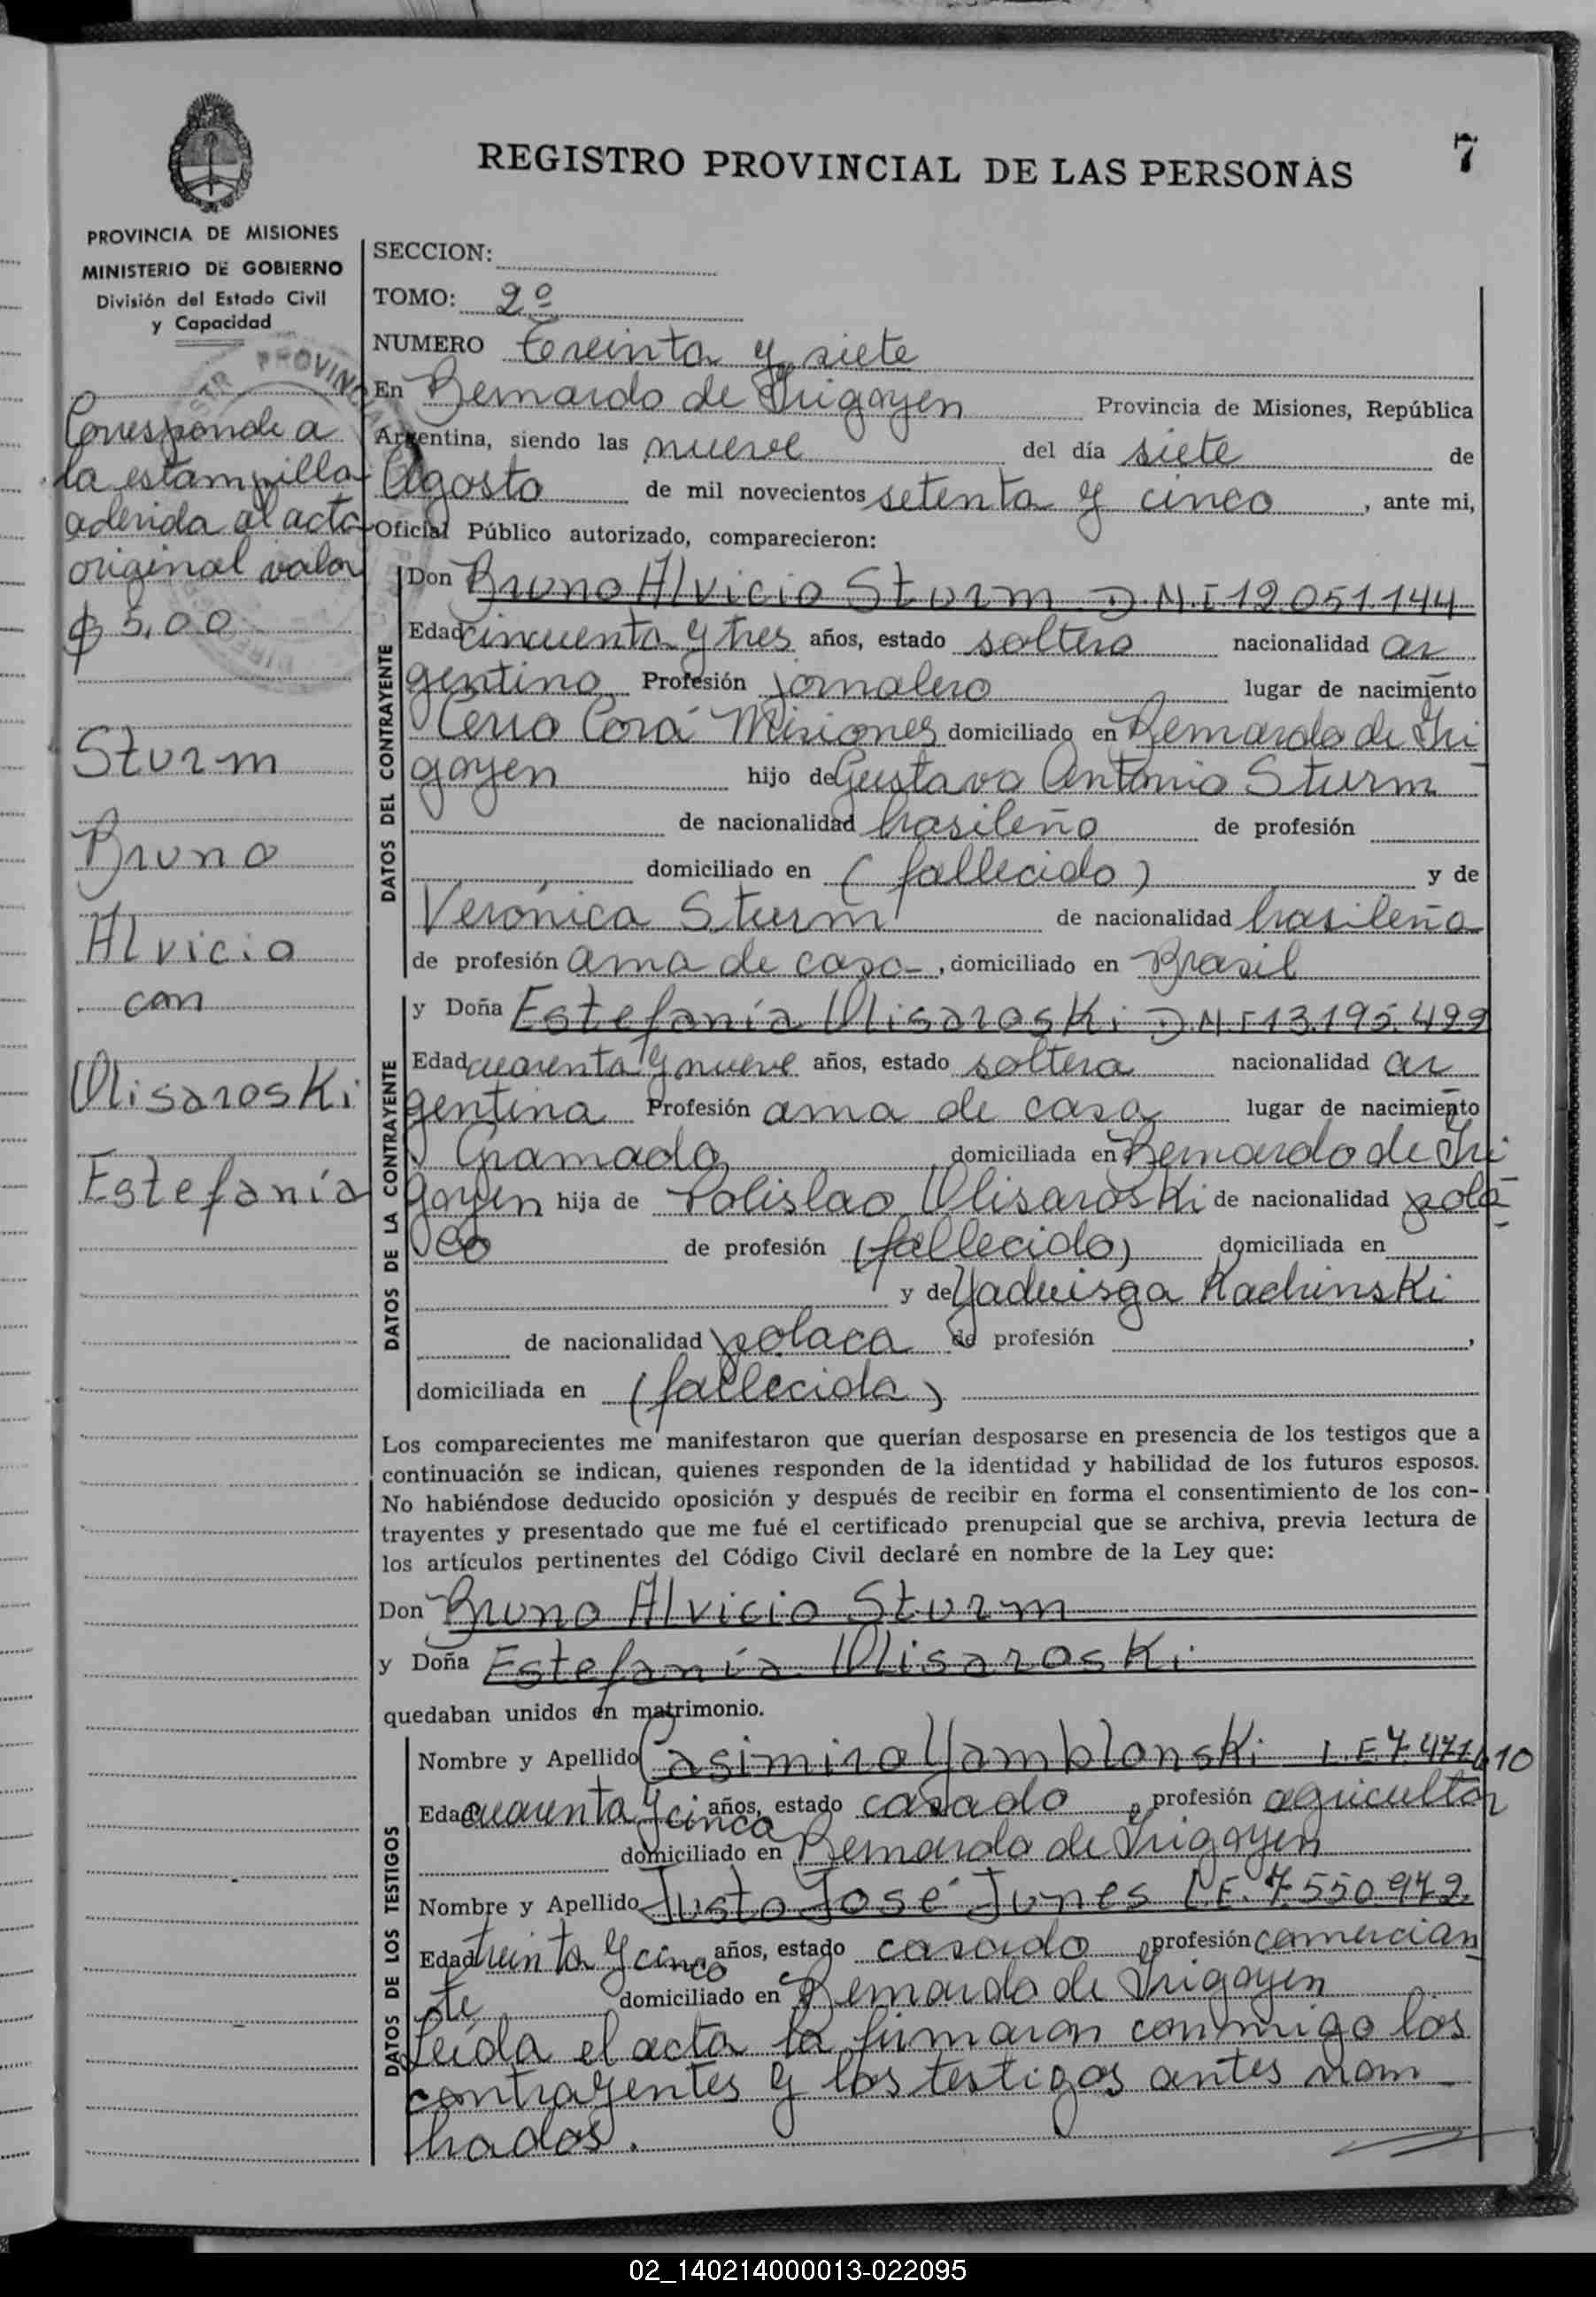 REGISTRO PROVINCIAL DE LAS PERSONAS
7
PROVINCIA DE MISIONES
MINISTERIO DE GOBIERNO
División del Estado Civil
y Capacidad
Corresponde a
la estampilla
aderida al acta
original valor
$ 5,00
Sturm
Bruno
Alvicio
con
Wisaroski
Estefanía
SECCION:
TOMO: 2º
NUMERO Treinta y siete
En Bernardo de Irigoyen Provincia de Misiones, República
Argentina, siendo las nueve del día siete de
Agosto de mil novecientos setenta y cinco, ante mi,
Oficial Público autorizado, comparecieron:
DATOS DEL CONTRAYENTE
Don Bruno Alvicio Sturm D.N.I 12.051.144
Edad cincuenta y tres años, estado soltero nacionalidad ar
gentino Profesión jornalero lugar de nacimiento
Cerro Corá Misiones domiciliado en Bernardo de Iri
goyen hijo de Gustavo Antonio Sturm
de nacionalidad brasileño de profesión
domiciliado en (fallecido) y de
Verónica Sturm de nacionalidad brasileña
de profesión ama de casa, domiciliado en Brasil
DATOS DE LA CONTRAYENTE
y Doña Estefanía Wisaroski D.N.I 13.195.499
Edad cuarenta y nueve años, estado soltera nacionalidad ar
gentina Profesión ama de casa lugar de nacimiento
Gramado, domiciliada en Bernardo de Iri
goyen hija de Polislao Wisaroski de nacionalidad pola-
co de profesión (fallecido) domiciliada en
y de Yaduisga Kachinski
de nacionalidad polaca de profesión ,
domiciliada en (fallecida)
Los comparecientes me manifestaron que querían desposarse en presencia de los testigos que a
continuación se indican, quienes responden de la identidad y habilidad de los futuros esposos.
No habiéndose deducido oposición y después de recibir en forma el consentimiento de los con-
trayentes y presentado que me fué el certificado prenupcial que se archiva, previa lectura de
los artículos pertinentes del Código Civil declaré en nombre de la Ley que:
Don Bruno Alvicio Sturm
y Doña Estefanía Wisaroski
quedaban unidos en matrimonio.
DATOS DE LOS TESTIGOS
Nombre y Apellido Casimiro Yamblonski L.E.7.471.610
Edad cuarenta y cinco años, estado casado, profesión agricultor
domiciliado en Bernardo de Irigoyen
Nombre y Apellido Justo José Junes L.E. 7.550.972
Edad treinta y cinco años, estado casado, profesión comercian
te, domiciliado en Bernardo de Irigoyen
Leída el acta la firmaron conmigo los
contrayentes y los testigos antes nom-
brados.
02_140214000013-022095